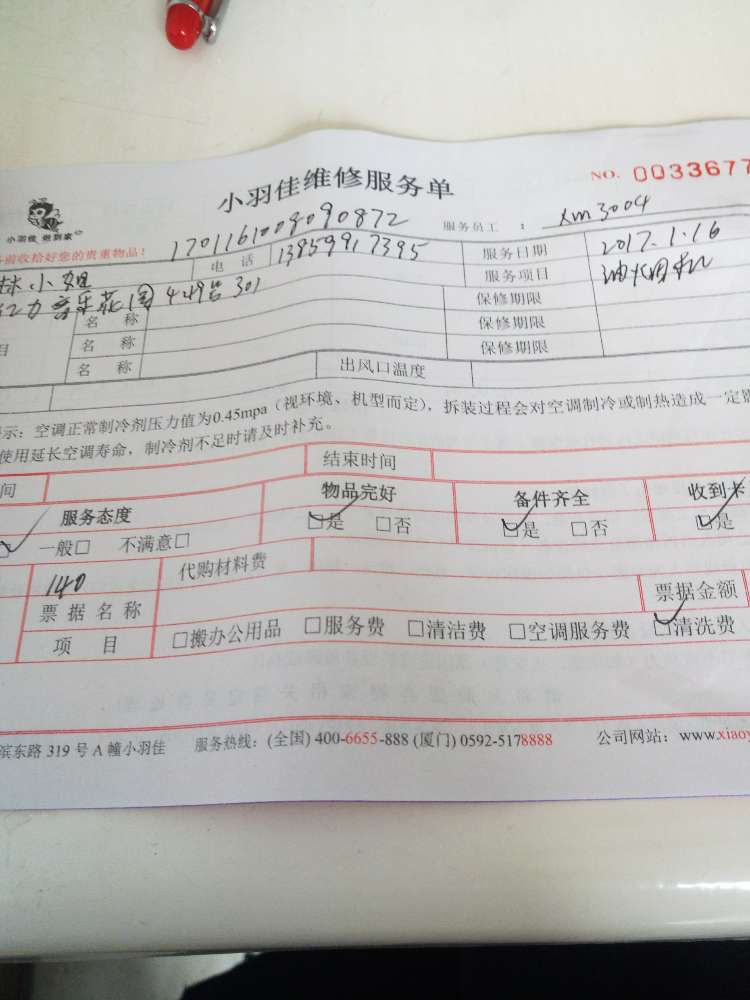 小羽佳维修服务单
NO. 0033677
小羽佳 做到家
验收恰好您的贵重物品！
1701161008090872
服务员工 ： xm3004
小姐 电 话 13859917395 服务日期 2017.1.16
音乐花园 44号301 服务项目 油烟机
保修期限
名 称 保修期限
目 名 称 保修期限
名 称 出风口温度
示：空调正常制冷剂压力值为0.45mpa（视环境、机型而定），拆装过程会对空调制冷或制热造成一定
使用延长空调寿命，制冷剂不足时请及时补充。
间 结束时间
服务态度 物品完好 备件齐全 收到卡
一般□ 不满意□ ☑是 □否 ☑是 □否 ☑是
140 代购材料费
票 据 名 称 票据金额
项 目 □搬办公用品 □服务费 □清洁费 □空调服务费 ☑清洗费
滨东路 319 号 A 幢小羽佳 服务热线：(全国) 400-6655-888 (厦门) 0592-5178888 公司网站：www.xiaoy